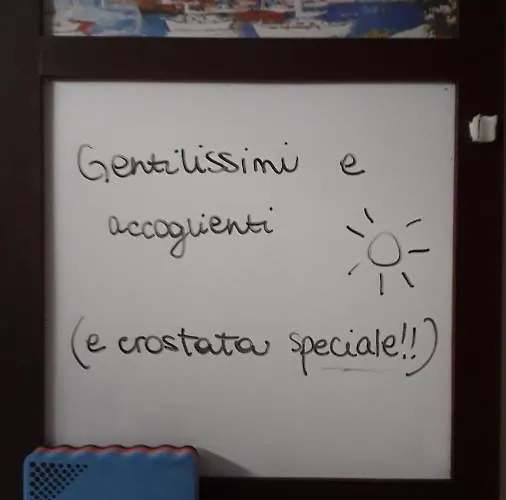 Gentilissimi e
accoglienti
(e crostata speciale!!)